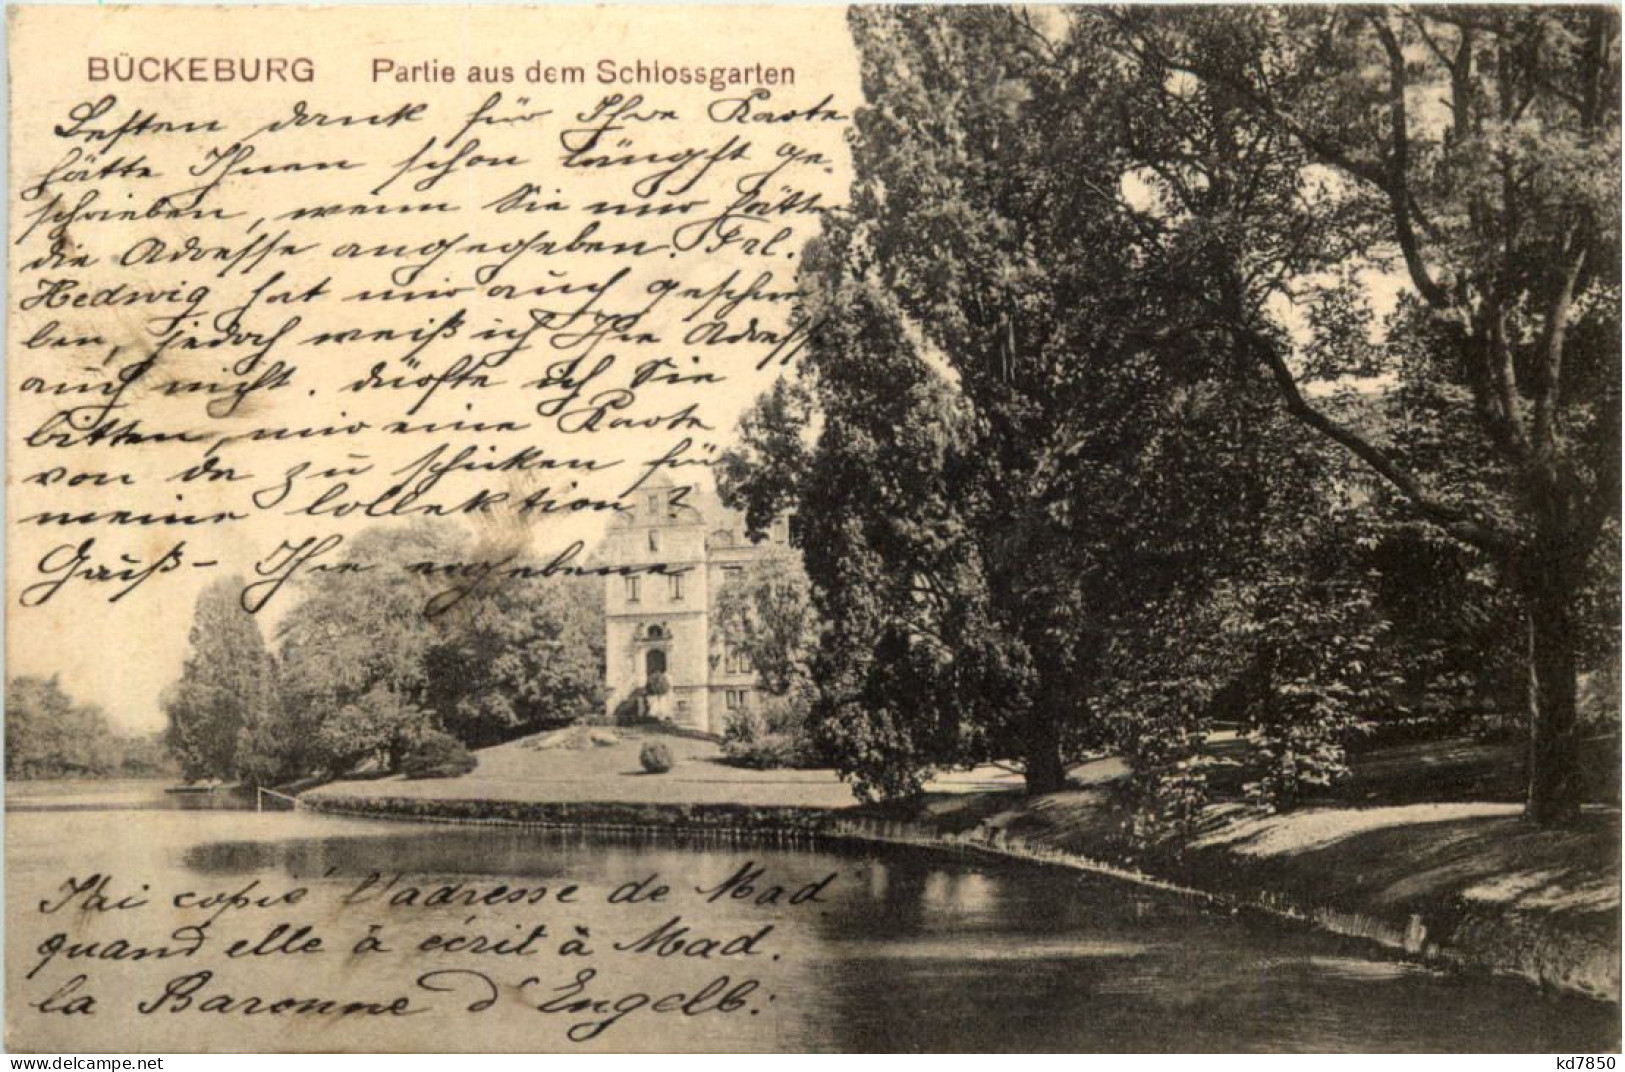 BÜCKEBURG Partie aus dem Schlossgarten
Besten dank für Ihre Karte
hätte Ihnen schon längst ge-
schrieben, wenn Sie mir hätten
die Adresse angegeben. Frl.
Hedwig hat mir auch geschrie
ben, jedoch weiß ich Ihre Adresse
auch nicht. dürfte ich Sie
bitten, mir eine Karte
von da zu schicken für
meine Collektion?
Gruß- Ihre ergebene
J'ai copié l'adresse de Mad
quand elle à écrit à Mad.
la Baronne d'Engelb:
www.delcampe.net
kd7850